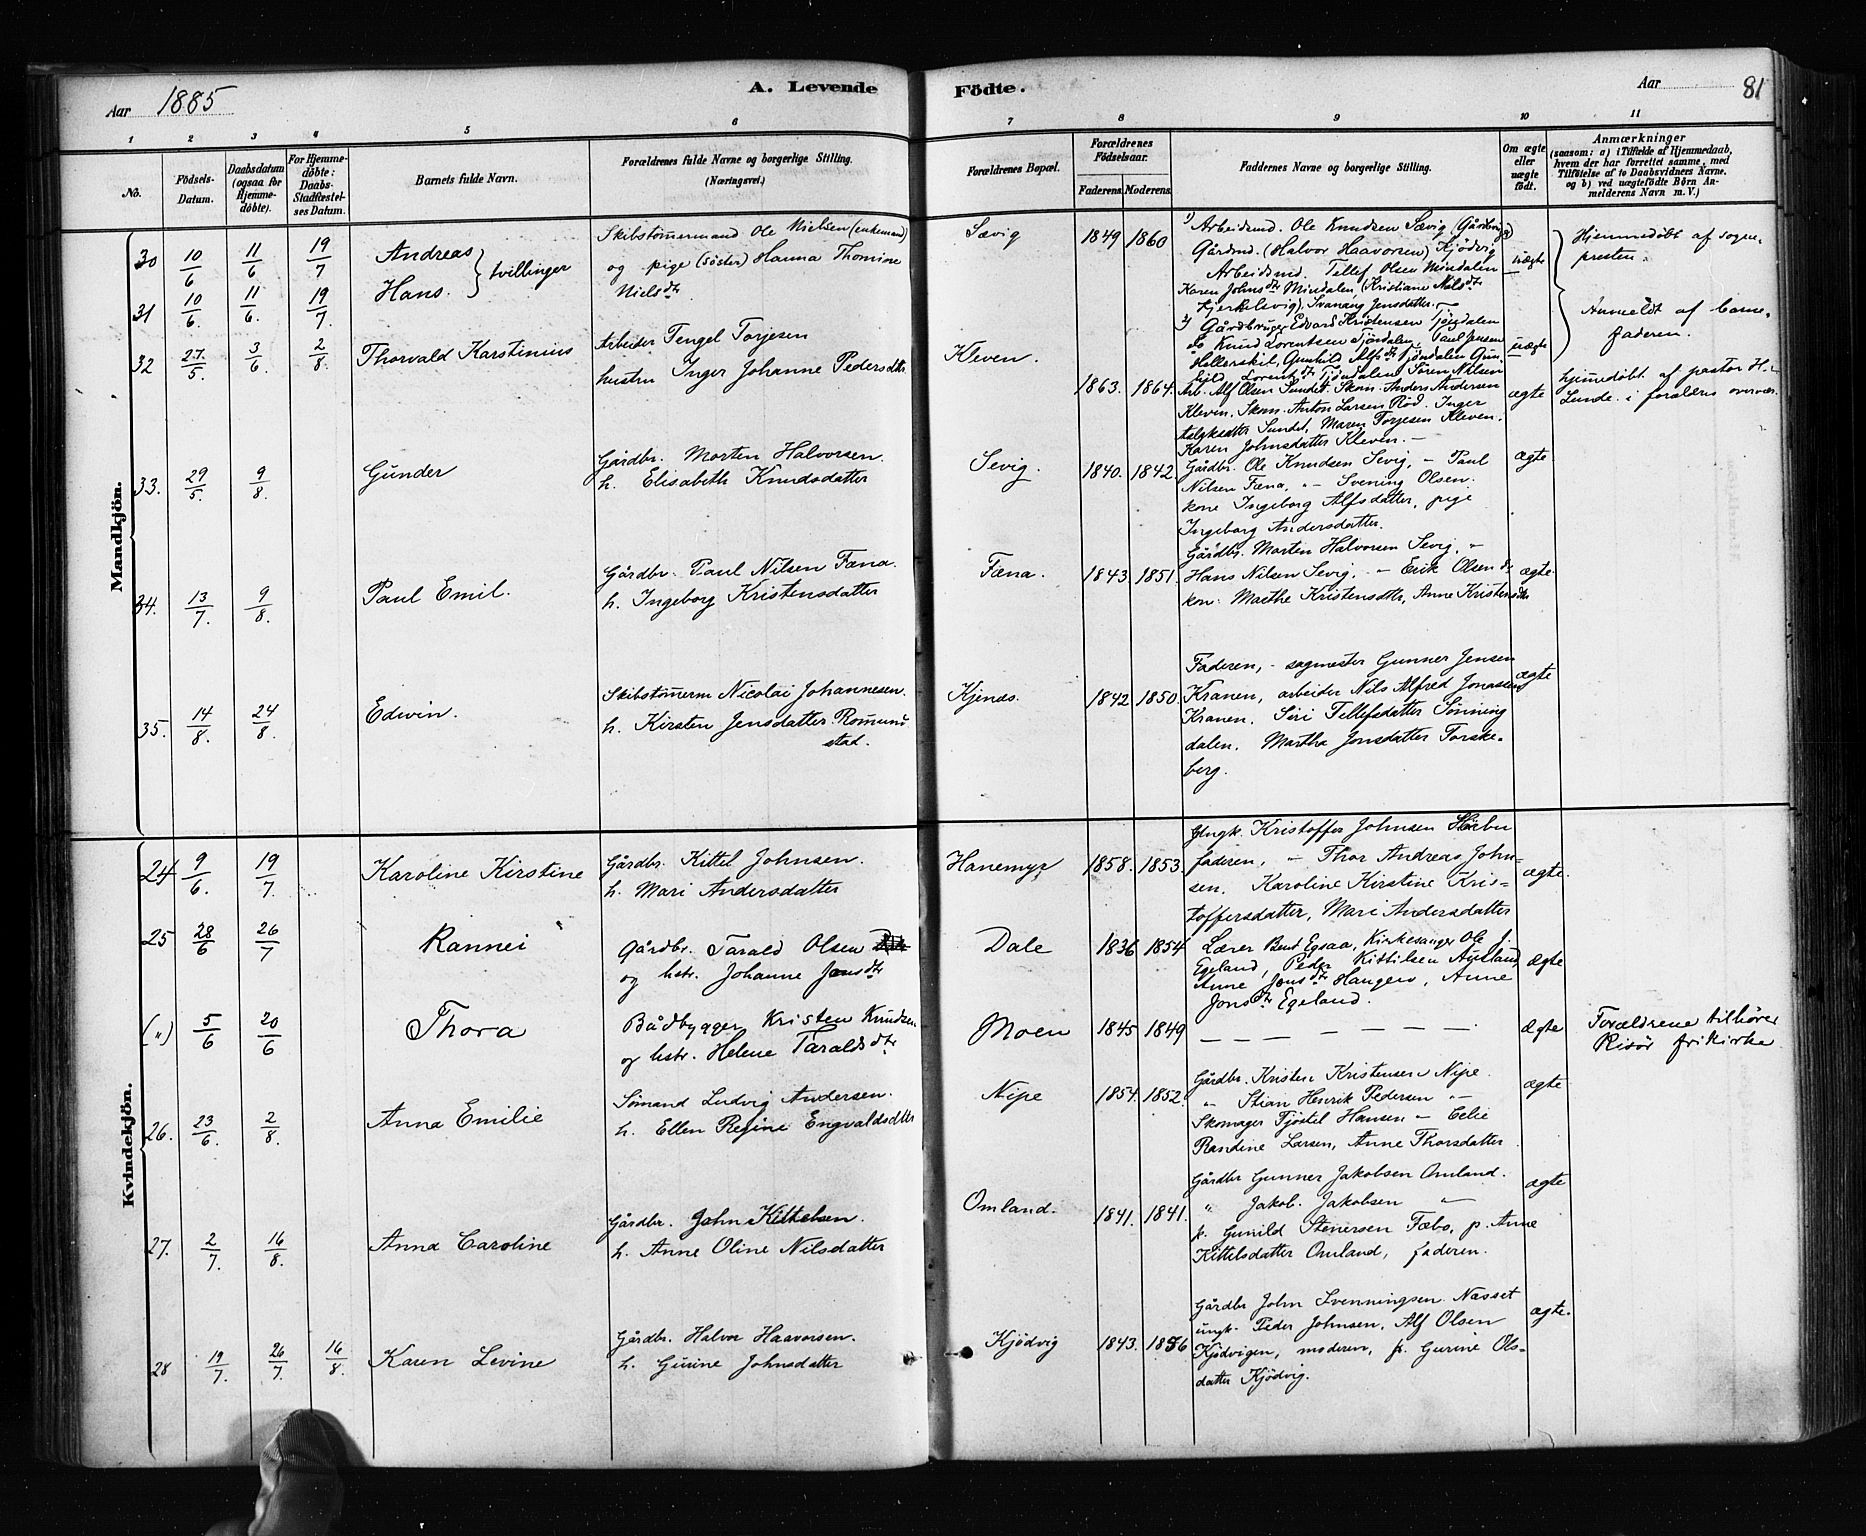 Aar 1885
A. Levende
Födte.
Aar
81
1 2 3 4 5 6 7 8 9 10 11
No.
Födsels-Datum.
Daabsdatum (ogsaa for Hjemme-döbte).
For Hjemme-döbte: Daabs-Stadfæstel-ses Datum.
Barnets fulde Navn.
Forældrenes fulde Navne og borgerlige Stilling. (Næringsvei.)
Forældrenes Bopæl.
Forældrenes Födselsaar.
Faderens. Moderens.
Faddernes Navne og borgerlige Stilling.
Om ægte eller uægte født.
Anmærkninger
(saasom: a) i Tilfælde af Hjemmedaab, hvem der har forrettet samme, med Tilföielse af to Daabsvidners Navne, og b) ved uægtefödte Börn An-melderens Navn m. V.)
Mandkjön.
30 10/6 11/6 19/7 Andreas
31 10/6. 11/6. 19/7. Hans.
tvillinger
Skibstömermand Ole Nielsen (enkemand)
og pige (søster) Hanna Thomine
Nielsdtr
Sævig
1849 1860
1) Arbeidsmd. Ole Knudsen Sævig (Gårdbrug)
Gårdmd. (Halvor Haavorsen) Kjödvig
Arbeidsmd. Tellef Olsen Mindalen
Karen Johnsdtr Mindalen (Kristiane Nilsdtr
Svanaug Jensdatter. —
2) Gårdbruger Edvard Kristensen
do Knud Lorentsen Tjöndalen, Paul Jensen
Hellerskil, Gunhild Alfsdtr Tjöndalen
Lorentsdtr Tjöndalen Sören Nilsen
uægte
uægte
Hjemmedöbt af sogne-
presten.
Anmeldt af barne-
faderen.
32 27/5. 3/6 2/8. Thorvald Karstinius
Arbeider Tengel Torjesen
hustru Inger Johanne Pedersdtr.
Kleven.
1863. 1864.
Arb. Alf Olsen Sundet. Skom. Anders Andersen
Kleven, Skom. Anton Larsen Röd. Inger
Aslaksdatter Sundet, Maren Torjesen Kleven.
Karen Johnsdatter Kleven. —
ægte
Hjemedöbt af pastor H.
Lunde i forældres overvær.
33. 29/5. 9/8. Gunder
Gårdbr. Morten Halvorsen.
h. Elisabeth Knudsdatter
Sevig.
1840. 1842
Gårdbr. Ole Knudsen Sevig, — Paul
Nilsen Fæna, " — Svening Olsen.
kone Ingeborg Alfsdatter, pige
Ingeborg Andersdatter.
ægte
34. 13/7. 9/8. Paul Emil.
Gårdbr. Paul Nilsen Fæna.
h. Ingeborg Kristensdatter
Fæna.
1843. 1851.
Gårdbr. Morten Halvorsen Sevig, "
Hans Nilsen Sevig. — Erik Olsen
kon. Marthe Kristensdtr, Anne Kristensdtr
ægte
35. 14/8. 24/8. Edwin.
Skibstömerm Nicolai Johannesen.
h. Kirsten Jensdatter Romund
stad.
Kjenæs.
1842 1850.
Faderen, - sagmester Gunner Jensen
Kranen, arbeider Nils Alfred Jonassen
Kranen. Siri Tellefsdatter Sönning
dalen. Martha Jonsdatter Torske-
berg.
ægte
Kvindekjön.
24 9/6. 19/7. Karoline Kirstine
Gårdbr. Kittel Johnsen.
h. Mari Andersdatter
Hanemyr
1858. 1853.
Ungk. Kristoffer Johnsen
faderen, — Thor Andreas John-
sen. Karoline Kirstine Kris-
toffersdatter, Mari Andersdatter
ægte.
25 28/6 26/7 Rannei
Gårdbr. Tarald Olsen
og hstr. Johanne Jonsdtr
Dale
1836 1854
Lærer Bent Egsaa, Kirkesanger Ole J.
Egeland, Peder Kittilsen Autland,
Anne Jonsdtr Haugen, Anne
Jonsdtr Egeland.
ægte
(") 5/6 20/6 Thora
Bådbygger Kristen Knudsen
og hstr. Helene Taraldsdtr
Moen
1845 1849
— — — — — — —
ægte
Forældrene tilhører
Risör frikirke
26. 23/6. 2/8. Anna Emilie
Sömand Ludvig Andersen.
h. Ellen Regine Engvaldsdtter
Nipe
1854. 1852.
Gårdbr. Kristen Kristensen Nipe.
" Stian Henrik Pedersen "
Skomager Tjöstel Hansen " Celie
Randine Larsen, Anne Thorsdatter
ægte
27. 2/7. 16/8. Anna Caroline
Gårdbr. John Kittelsen.
h. Anne Oline Nilsdatter
Omland.
1841. 1841.
Gårdbr Gunner Jakobsen Omland.
" Jakob. Jakobsen "
p. Gunild Stenersen Fæbo, p. Anne
Kittelsdatter Omland, faderen.
ægte
28 19/7. 26/7. 16/8. Karen Levine
Gårdbr. Halvor Haavorsen.
h. Gurine Johnsdatter
Kjödvig
1843. 1856
Gårdbr John Svenningsen Næsset
ungk. Peder Johnsen, Alf Olsen
Kjödvigen, moderen, p. Gurine Ols-
datter Kjödvig.
ægte.